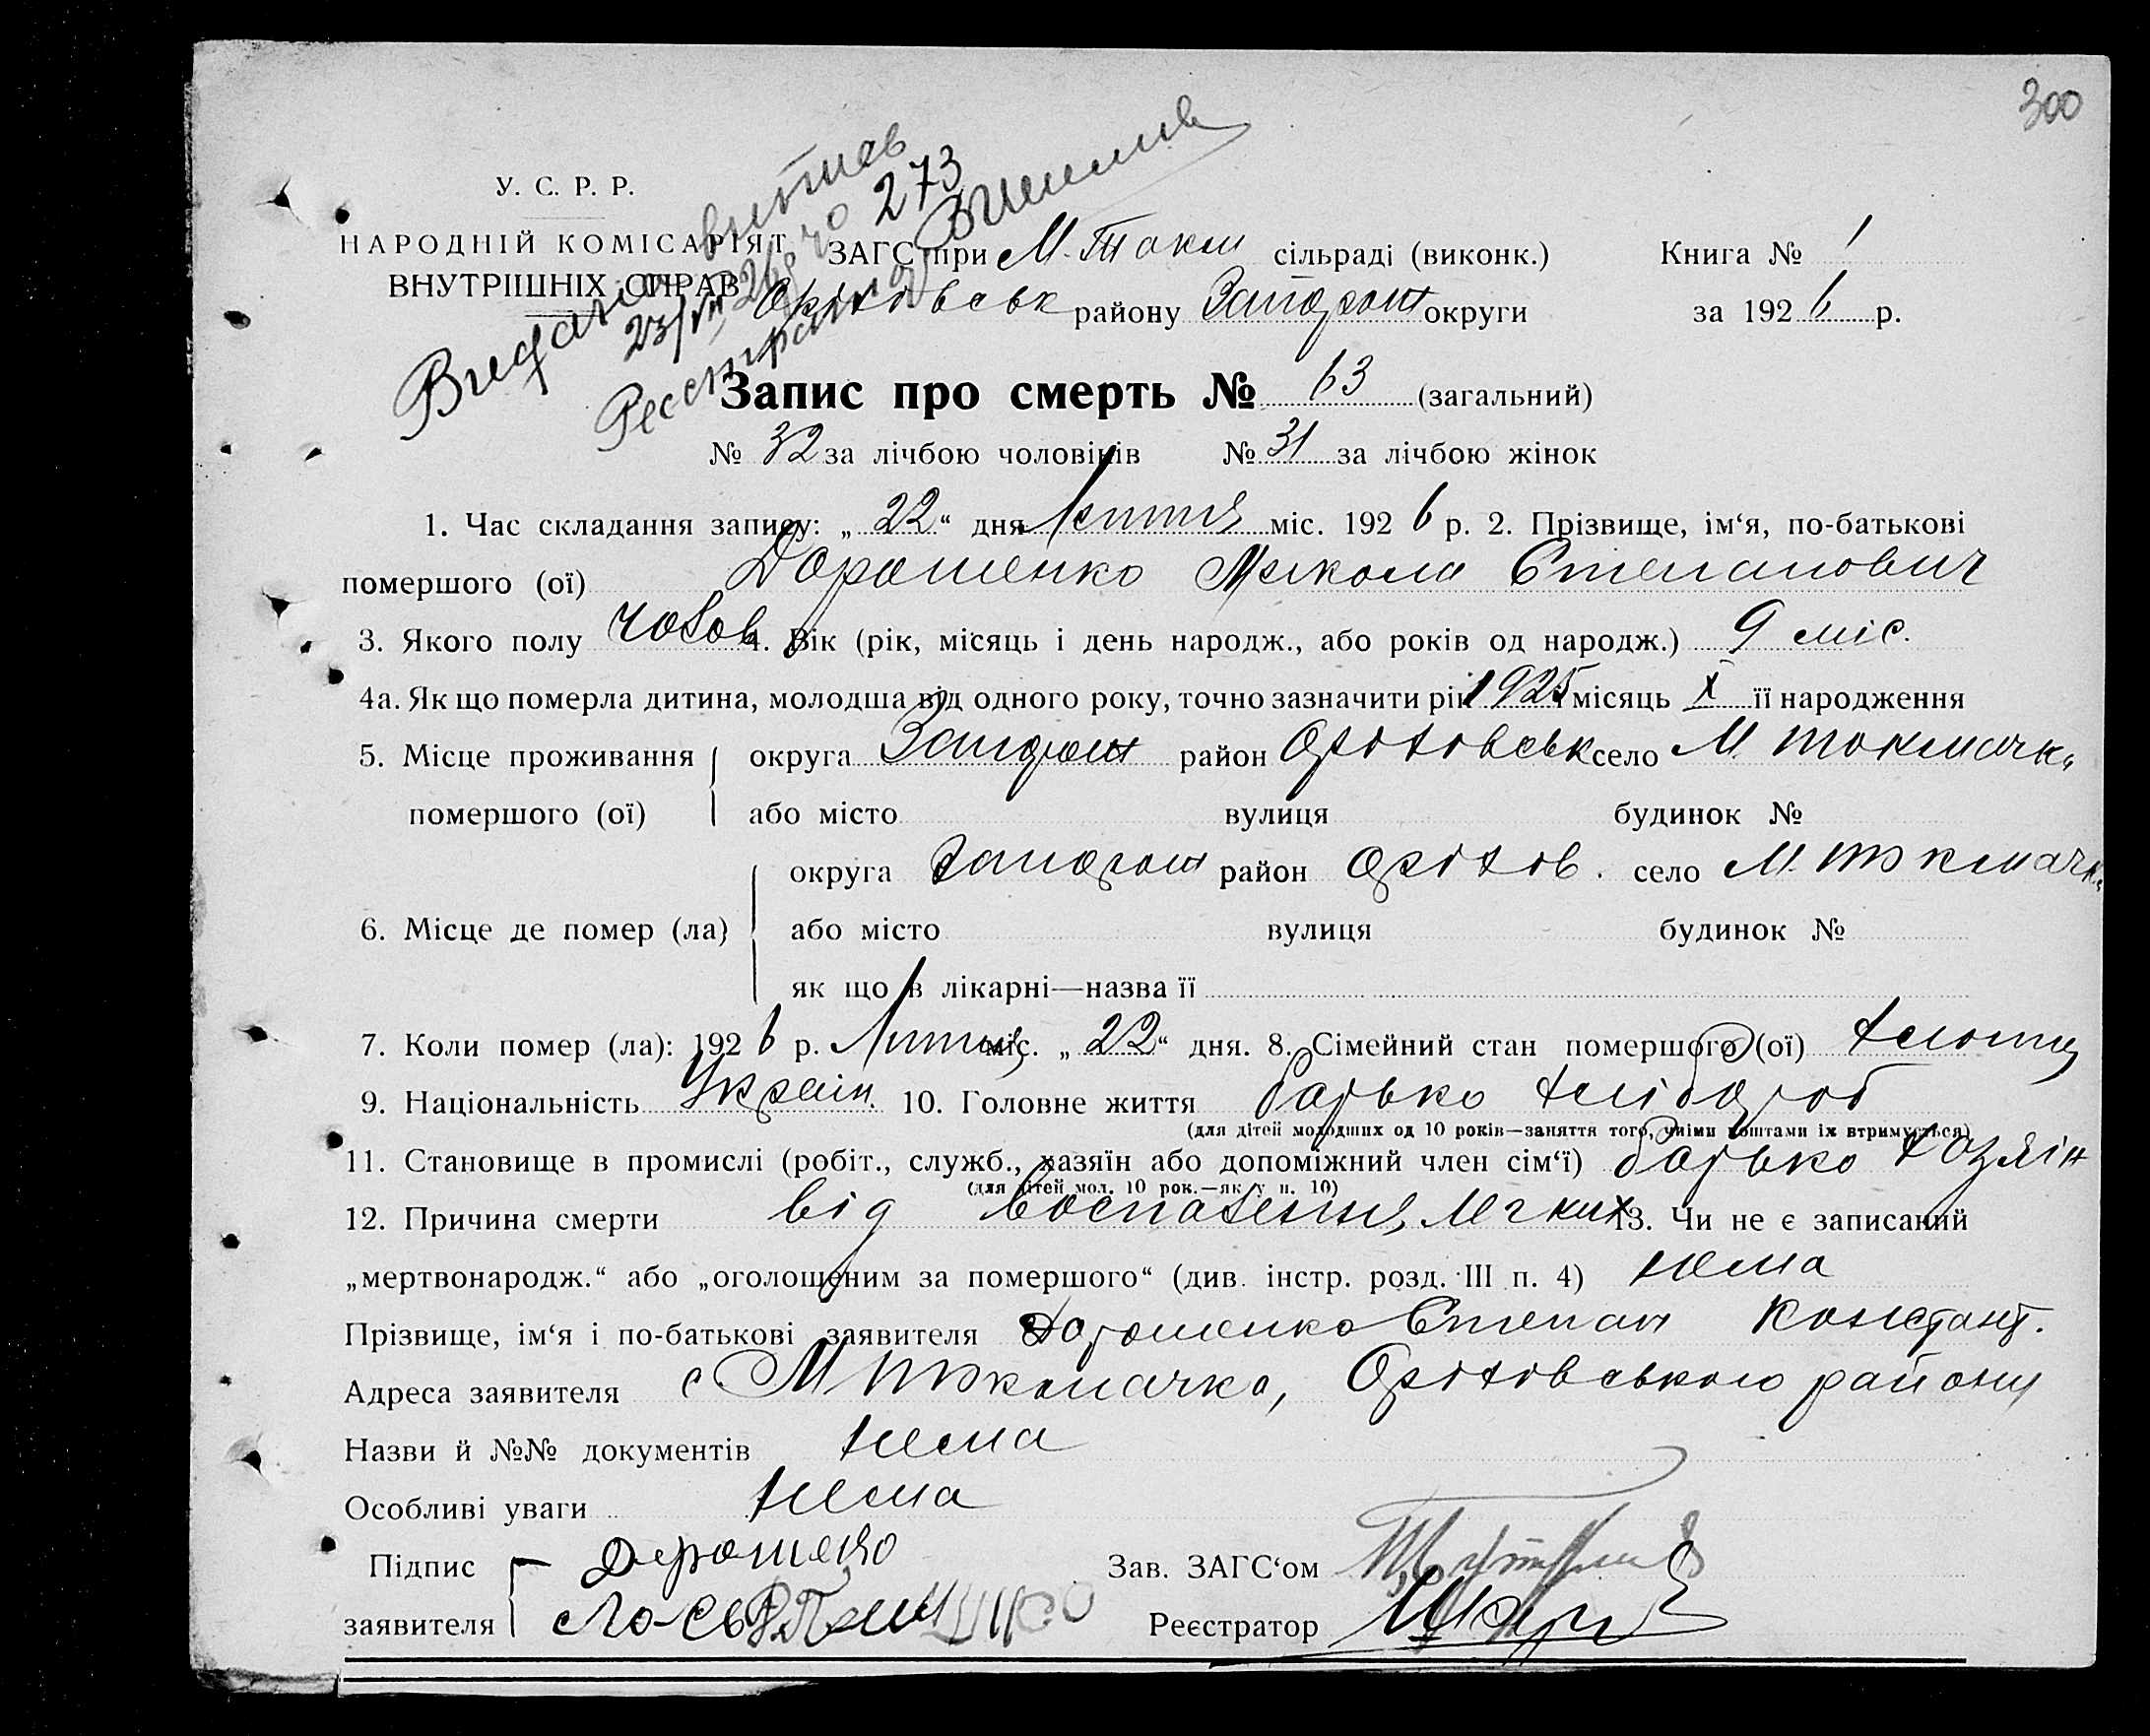 300
Видано витяг
23/VII 26 р. № 273
Реєстратор
У. С. Р. Р.
НАРОДНІЙ КОМІСАРІЯТ
ВНУТРІШНІХ СПРАВ
ЗАГС при М. Токм сільраді (виконк.) Книга № 1
Оріхівськ району Запоріж округи за 1926 р.
Запис про смерть № 63 (загальний)
№ 32 за лічбою чоловіків № 31 за лічбою жінок
1. Час складання запису: „22“ дня Липня міс. 1926 р. 2. Прізвище, ім‘я, по-батькові
помершого (ої) Дорошенко Микола Степанович
3. Якого полу чолов 4. Вік (рік, місяць і день народж., або років од народж.) 9 міс.
4а. Як що померла дитина, молодша від одного року, точно зазначити рік 1925 місяць X її народження
5. Місце проживання округа Запорож район Оріхівськ село М. Токмачка
помершого (ої) або місто вулиця будинок №
округа Запорож район Оріхів. село М. Токмачка
6. Місце де помер (ла) або місто вулиця будинок №
як що в лікарні—назва її
7. Коли помер (ла): 1926 р. Липня міс. „22“ дня. 8. Сімейний стан помершого (ої)
9. Національність Україн. 10. Головне життя батько хлібороб
(для дітей молодших од 10 років—заняття того, чиїми коштами їх втримується)
11. Становище в промислі (робіт., служб., хазяїн або допоміжний член сім‘ї) батько хозяін
(для дітей мол. 10 рок.—як у п. 10)
12. Причина смерти від воспаления легких 13. Чи не є записаний
„мертвонародж.“ або „оголошеним за помершого“ (див. інстр. розд. III п. 4) нема
Прізвище, ім‘я і по-батькові заявителя Дорошенко Степан Констант.
Адреса заявителя с. М Токмачка, Оріхівського району
Назви й №№ документів нема
Особливі уваги нема
Підпис Дорошенко Зав. ЗАГС‘ом
заявителя Реєстратор